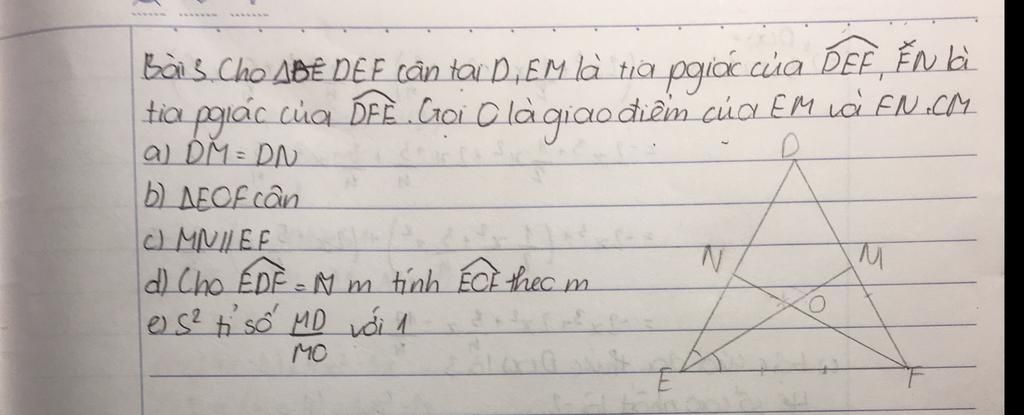 Bài 3. Cho ΔDEF cân tại D, EM là tia pgiác của DEF, FN là
tia pgiác của DFE. Gọi O là giao điểm của EM và FN. CM
a) DM = DN
b) ΔEOF cân
c) MN // EF
d) Cho EDF = m tính EOF theo m
e) S² tỉ số MD/MO với 1
D
N
M
O
E
F